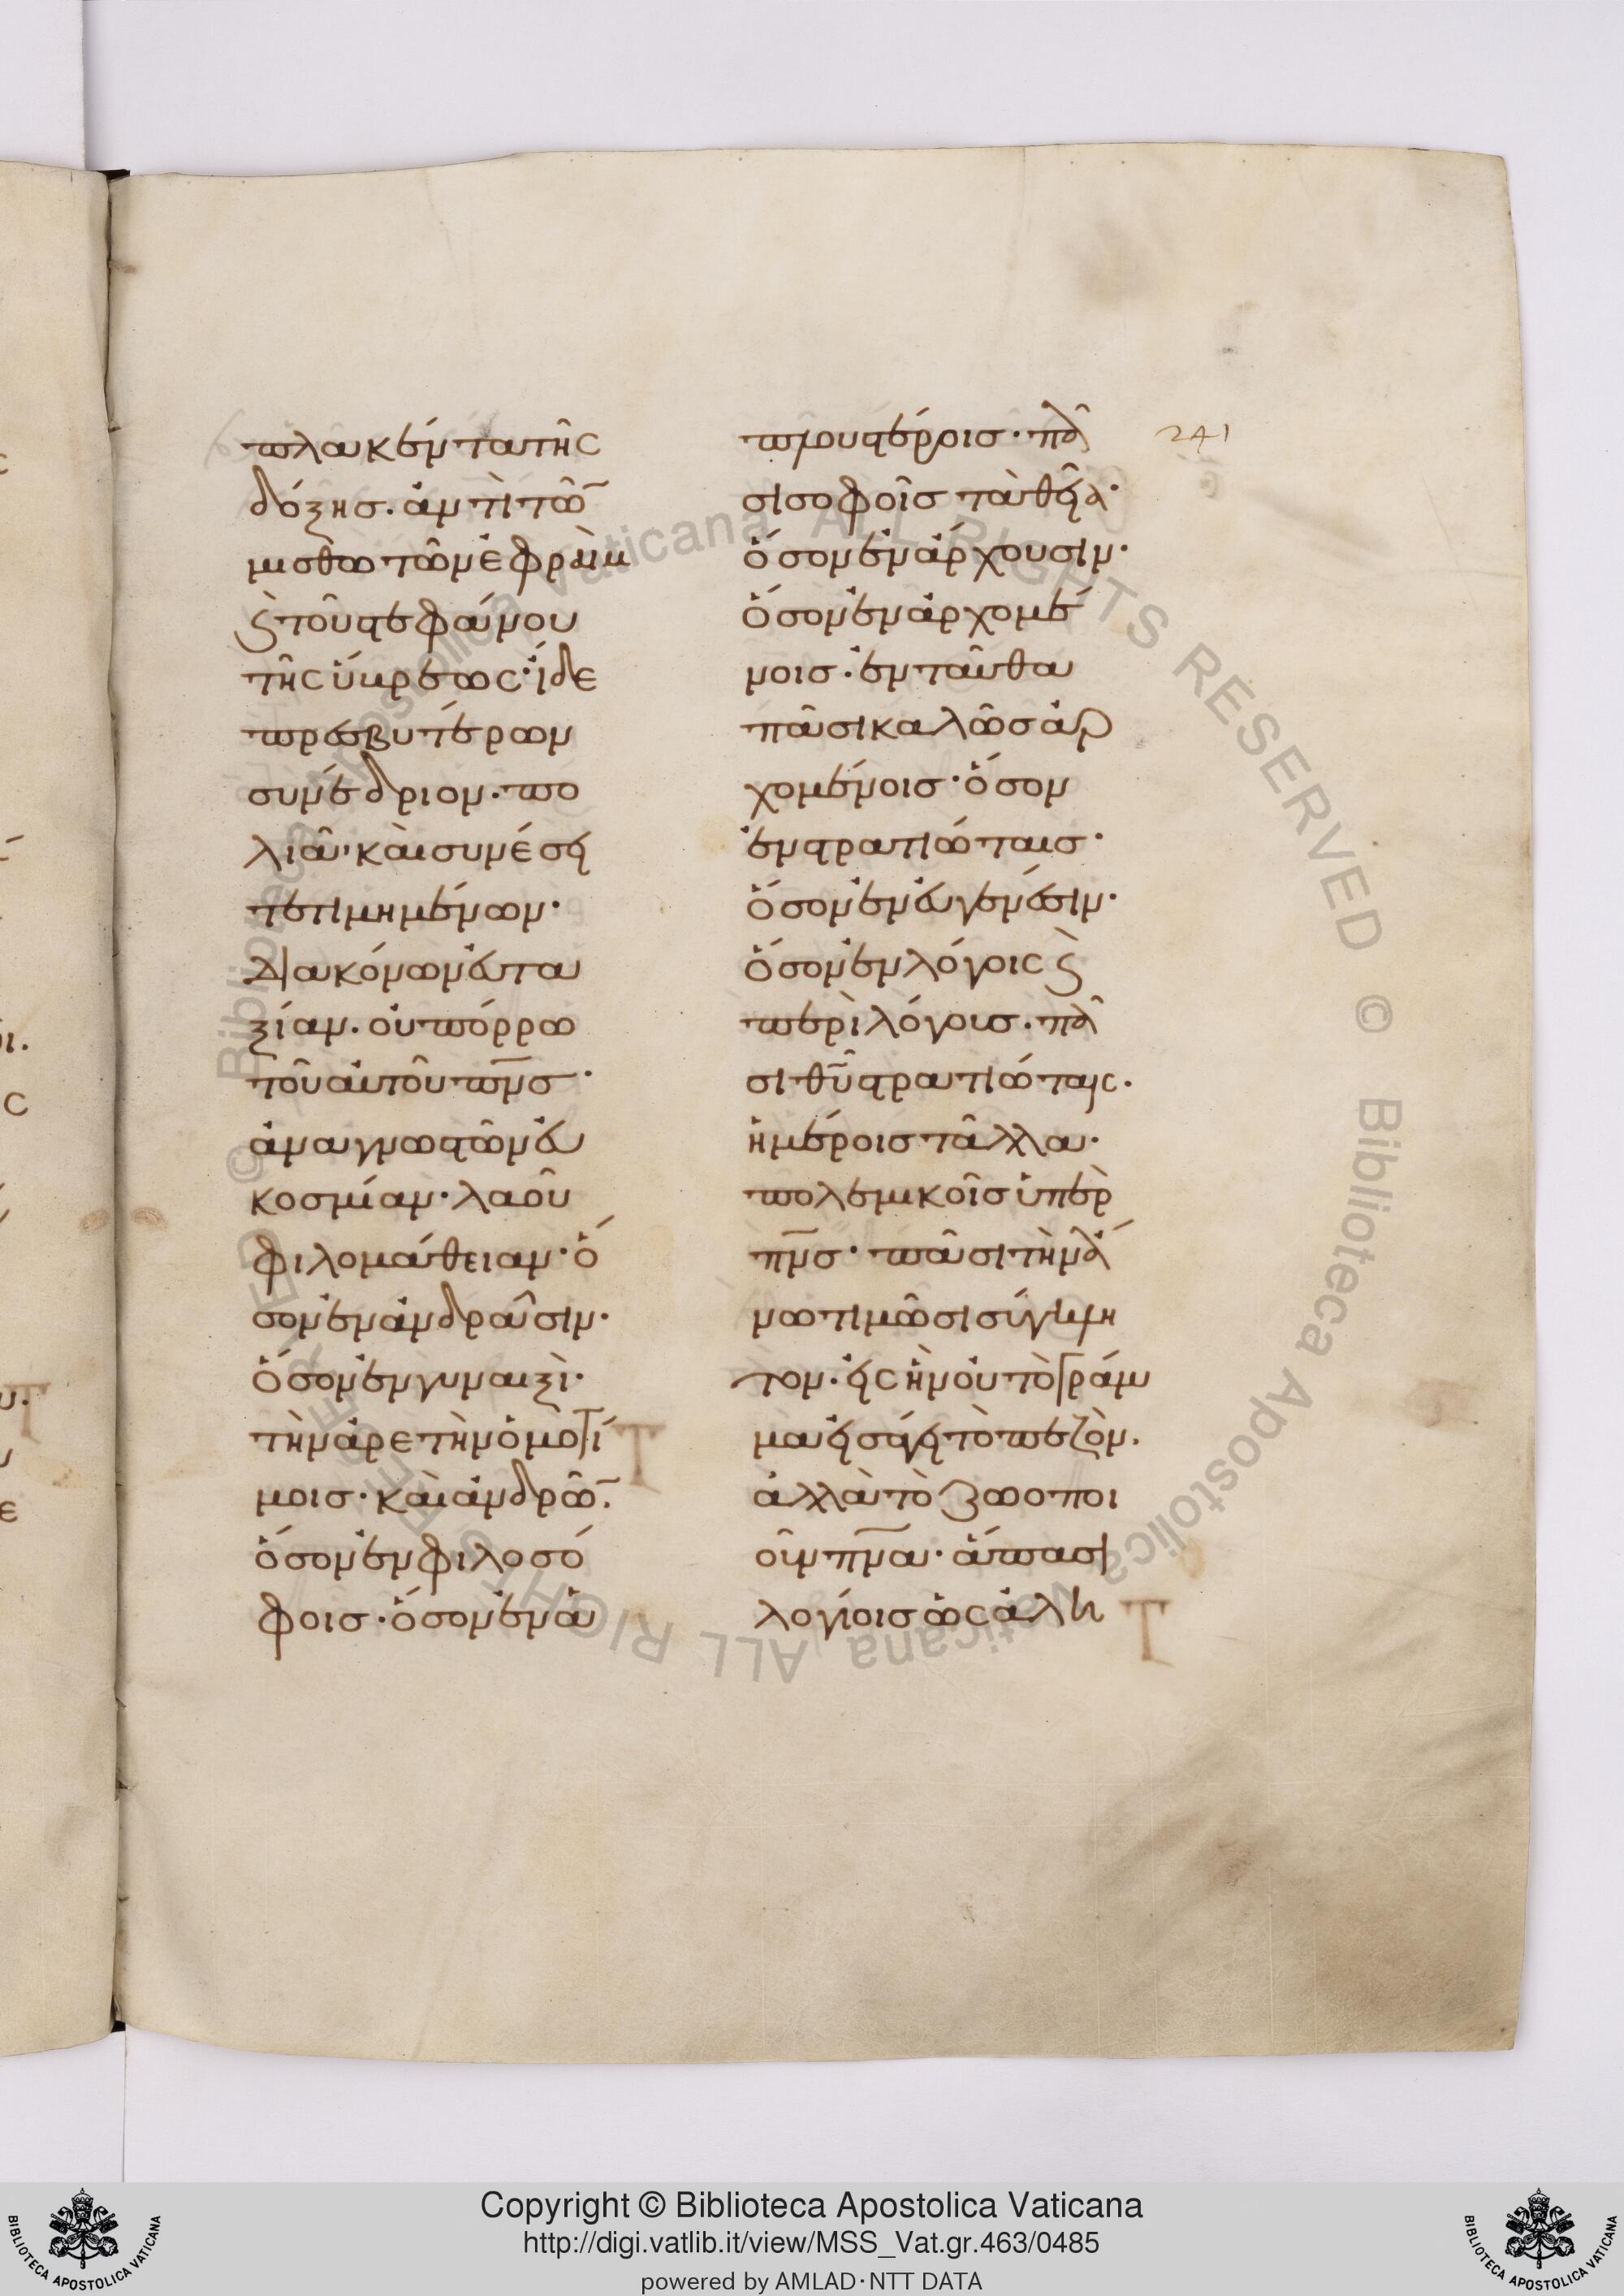 πλακέντα τῆς
δόξης· ἀντὶ τῶ̅
μισθωτῶν ἐφραὶμ
ϗ τοῦ στεφάνου
τῆς ὕβρεως· ἴδε
πρεσβυτέρων
συνέδριον· πο
λιᾶ· καὶ συνέσει
τετιμημένων·
διακόνων εὐτα
ξίαν· οὐ πόρρω
τοῦ αὐτοῦ πν̅σ·
ἀναγνωστῶν εὐ
κοσμίαν· λαοῦ
φιλομάθειαν· ὅ
σον ἐν ἀνδράσιν·
ὅσον ἐν γυναιξὶ·
τὴν ἀρετὴν ὁμοτί
μοις· καὶ ἀνδρῶ̅·
ὅσον ἐν φιλοσό
φοις· ὅσον ἐν ἁ
πλουστέροις· πᾶ
σι σοφοῖς τὰ θεῖα·
ὅσον ἐν ἄρχουσιν·
ὅσον ἐν ἀρχομέ
νοις· ἐνταῦθα
πᾶσι καλῶς ἀρ
χομένοις· ὅσον
ἐν στρατιώταις·
ὅσον ἐν εὐγενέσιν·
ὅσον ἐν λόγοις ϗ
περὶ λόγους· πᾶ
σι θ̅υ̅ στρατιώταις·
ἡμέροις τἆλλα·
πολεμικοῖς ὑπὲρ
πν̅σ· πᾶσι τὴν ἄ
νω τιμῶσι σύγκλη
τον· εἰς ἣν οὐ τὸ γράμ
μα εἰσάγει τὸ πεζὸν·
ἀλλὰ τὸ ζωοποι
οῦν πν̅α· ἅπασι
λογίοις ὡς ἀλη
241
Copyright © Biblioteca Apostolica Vaticana
http://digi.vatlib.it/view/MSS_Vat.gr.463/0485
powered by AMLAD·NTT DATA